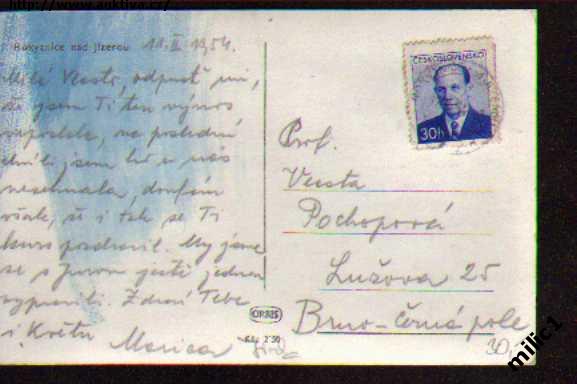 http://www.auktiva.cz/
Rokytnice nad Jizerou 11.II.1954.
Milá Vlasto, odpusť mi,
že jsem Ti ten výnos
neposlala, na poslední
chvíli jsem ho u nás
nesehnala, doufám
však, že i tak se Ti
kurs podařil. My jsme
se s Jurou ještě jednou
vypravili. Zdraví Tebe
i Květu Marica
ORBIS
Kčs 2·50
ČESKOSLOVENSKO
30h
Prof.
Vlasta
Pochopová
Lužova 25
Brno-Černá pole
30,-
milic1